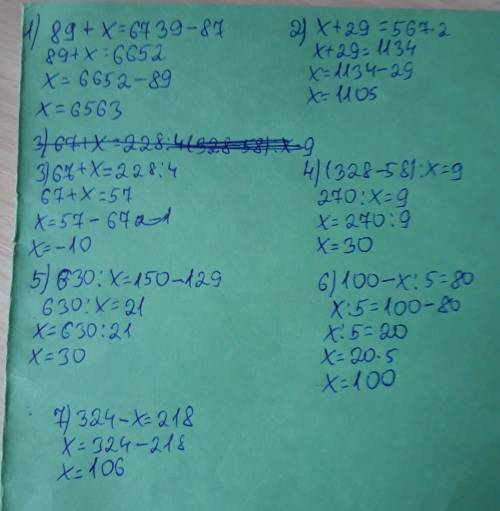 1) 89 + x = 6739 - 87
89 + x = 6652
x = 6652 - 89
x = 6563
2) x + 29 = 567·2
x + 29 = 1134
x = 1134 - 29
x = 1105
3) 67 + x = 228:4(328-58):x=9
3) 67 + x = 228:4
67 + x = 57
x = 57 - 67
x = -10
4) (328 - 58):x = 9
270:x = 9
x = 270:9
x = 30
5) 630:x = 150 - 129
630:x = 21
x = 630:21
x = 30
6) 100 - x:5 = 80
x:5 = 100 - 80
x:5 = 20
x = 20·5
x = 100
7) 324 - x = 218
x = 324 - 218
x = 106